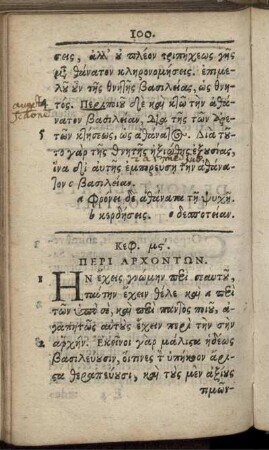 100.
σεις, ἀλλ' ὐ πλέον τριπήχεως γῆς
μ̃ θάνατον κληρονομήσεις. ἐπιμε
λȣ ȣ̓ν τῆς θνητῆς βασιλείας, ὡς θνη
τός. Πέρα ποιȣ͂ δὲ καὶ τὴν ἀθά
νατον βασιλείαν, διὰ τῆς τῶν ἀρε
5 τῶν κτήσεως, ὡς ἀθάνατος. Διὰ τȣ
το γὰρ τῆς θνητῆς ἠξιώθης ἐξȣσίας,
ἵνα διὰ αὐτῆς ἐμπορεύσῃ τὴν ἀθάνα
τον c βασιλείαν.
a φρόνει δὲ ἀθάνατα τῇ ψυχῇ.
b κερδήσεις. c δεσποτείαν.
Κεφ. μϛʹ.
ΠΕΡΙ ΑΡΧΟΝΤΩΝ.
1 ΗΝ ἔχεις γνώμην περὶ σεαυτȣ͂,
ταύτην ἔχειν θέλε καὶ a περὶ
τῶν ὑπὸ σὲ, καὶ περὶ παντὸς ποιȣ,
ἀγαπητῶς αὐτȣ̀ς ἔχειν περὶ τὴν σὴν
2 ἀρχήν. Ἐκεῖνοι γὰρ μάλιστα ἡδέως
βασιλεύȣσιν, οἵτινες τ̀ ὑπήκοον ἄρι-
στα θεραπεύȣσι, καὶ τȣ̀ς μὲν ἀξίȣς
τιμῶν-